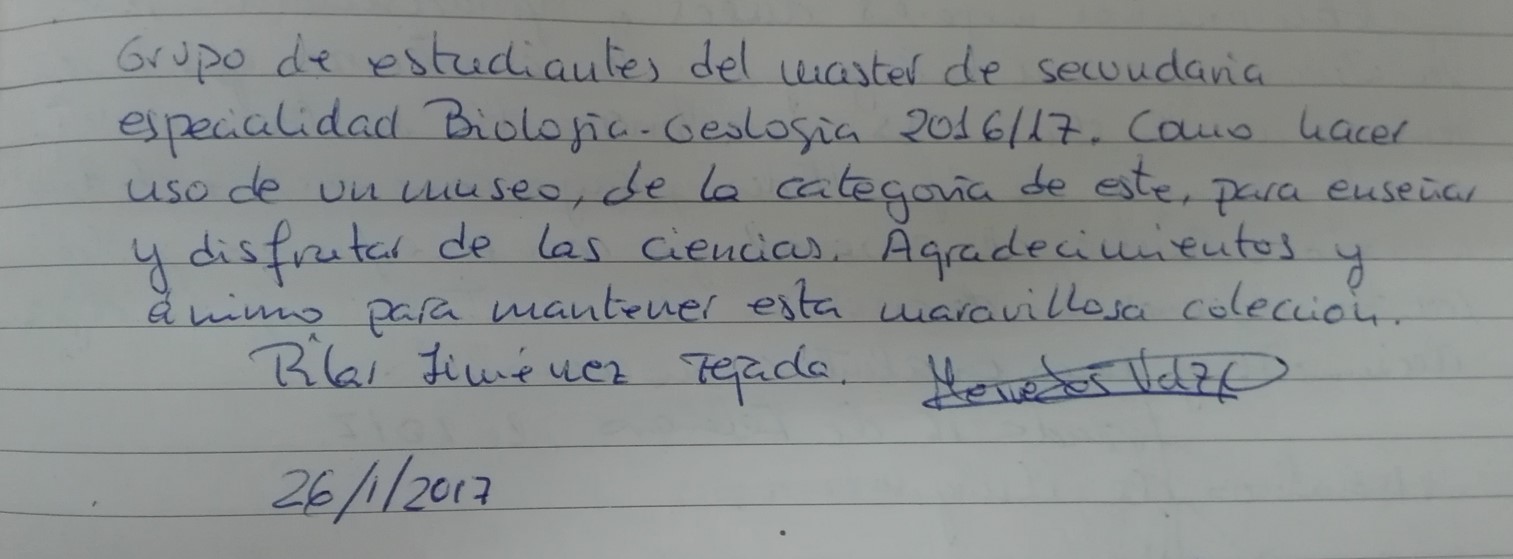 Grupo de estudiantes del master de secundaria
especialidad Biología-Geología 2016/17. Como hacer
uso de un museo, de la categoría de este, para enseñar
y disfrutar de las ciencias. Agradecimientos y
ánimo para mantener esta maravillosa colección.
Pilar Jiménez Tejada.
26/1/2017